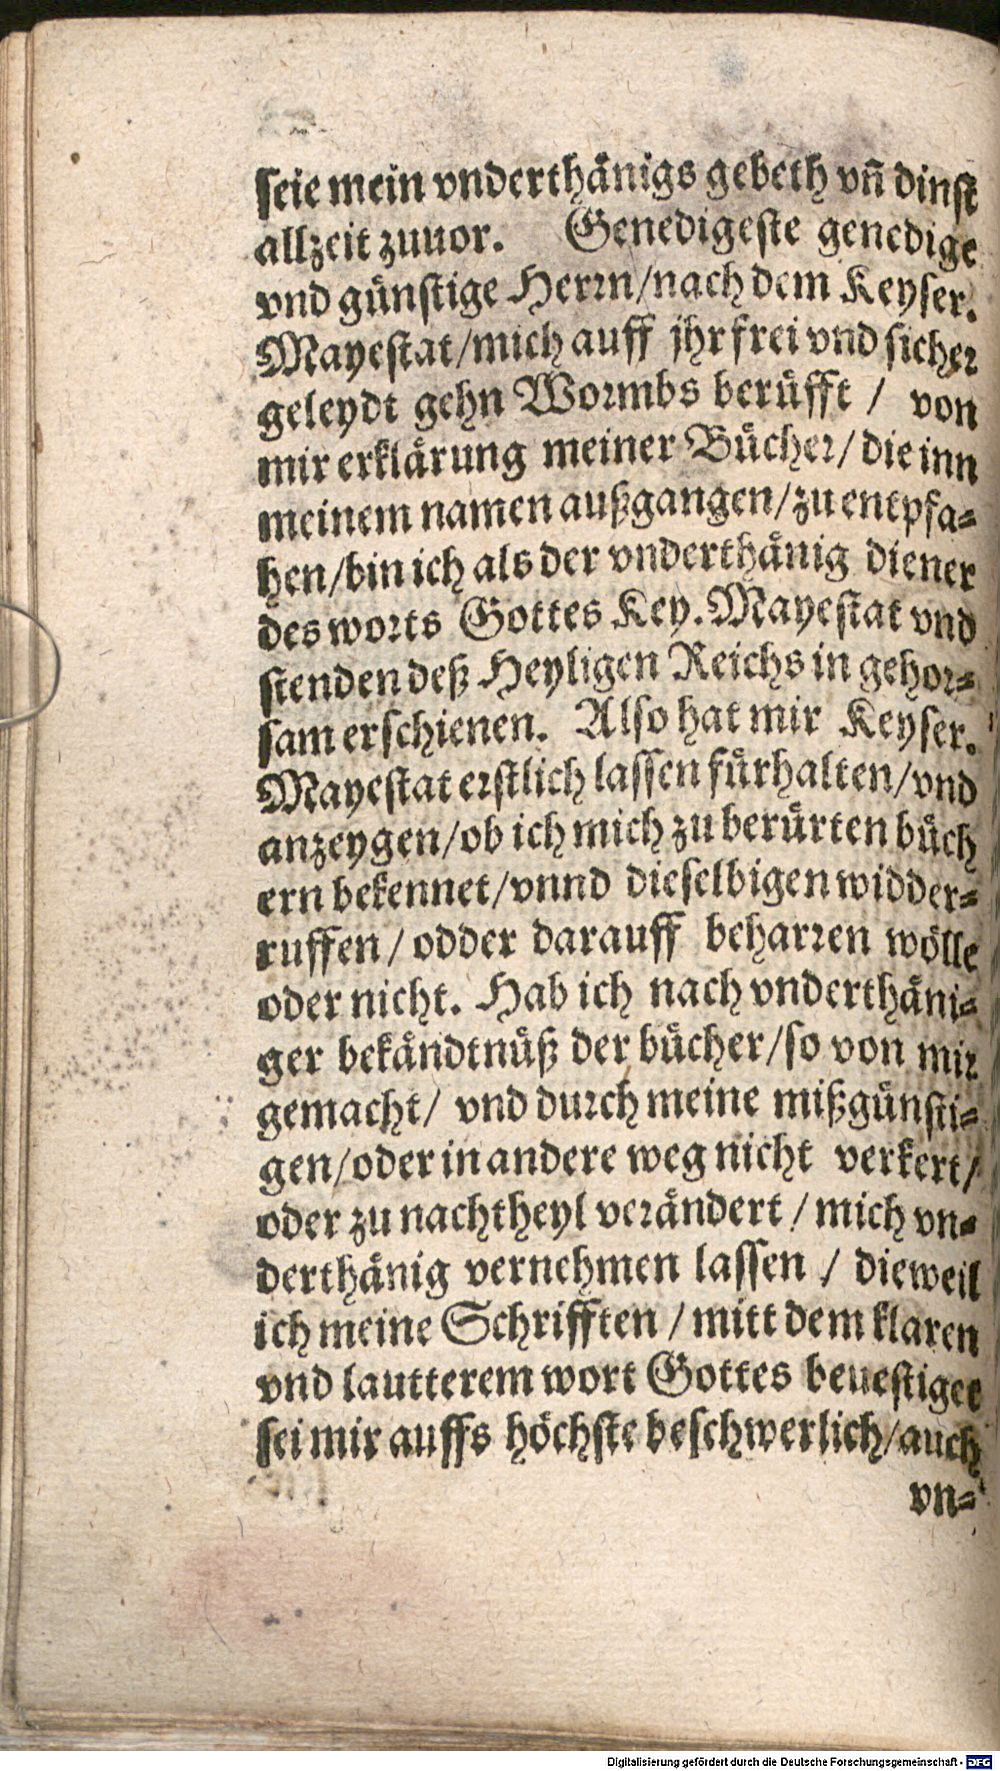 seie mein vnderthänigs gebeth vñ dinst
allzeit zuuor. Genedigeste genedige
vnd günstige Herrn/nach dem Keyser.
Mayestat/mich auff jhr frei vnd sicher
geleydt gehn Wormbs berüfft / von
mir erklärung meiner Bücher/ die inn
meinem namen außgangen/zu entpfa-
hen/bin ich als der vnderthänig diener
des worts Gottes Key. Mayestat vnd
stenden deß Heyligen Reichs in gehor-
sam erschienen. Also hat mir Keyser.
Mayestat erstlich lassen fürhalten/vnd
anzeygen/ob ich mich zu berürten büch
ern bekennet/vnnd dieselbigen widder-
ruffen/ odder darauff beharren wölle
oder nicht. Hab ich nach vnderthäni-
ger bekändtnüß der bücher/so von mir
gemacht/ vnd durch meine mißgünsti-
gen/oder in andere weg nicht verkert/
oder zu nachtheyl verändert / mich vn-
derthänig vernehmen lassen / dieweil
ich meine Schrifften / mitt dem klaren
vnd lautterem wort Gottes beuestiget
sei mir auffs höchste beschwerlich/auch
vn-
Digitalisierung gefördert durch die Deutsche Forschungsgemeinschaft - DFG